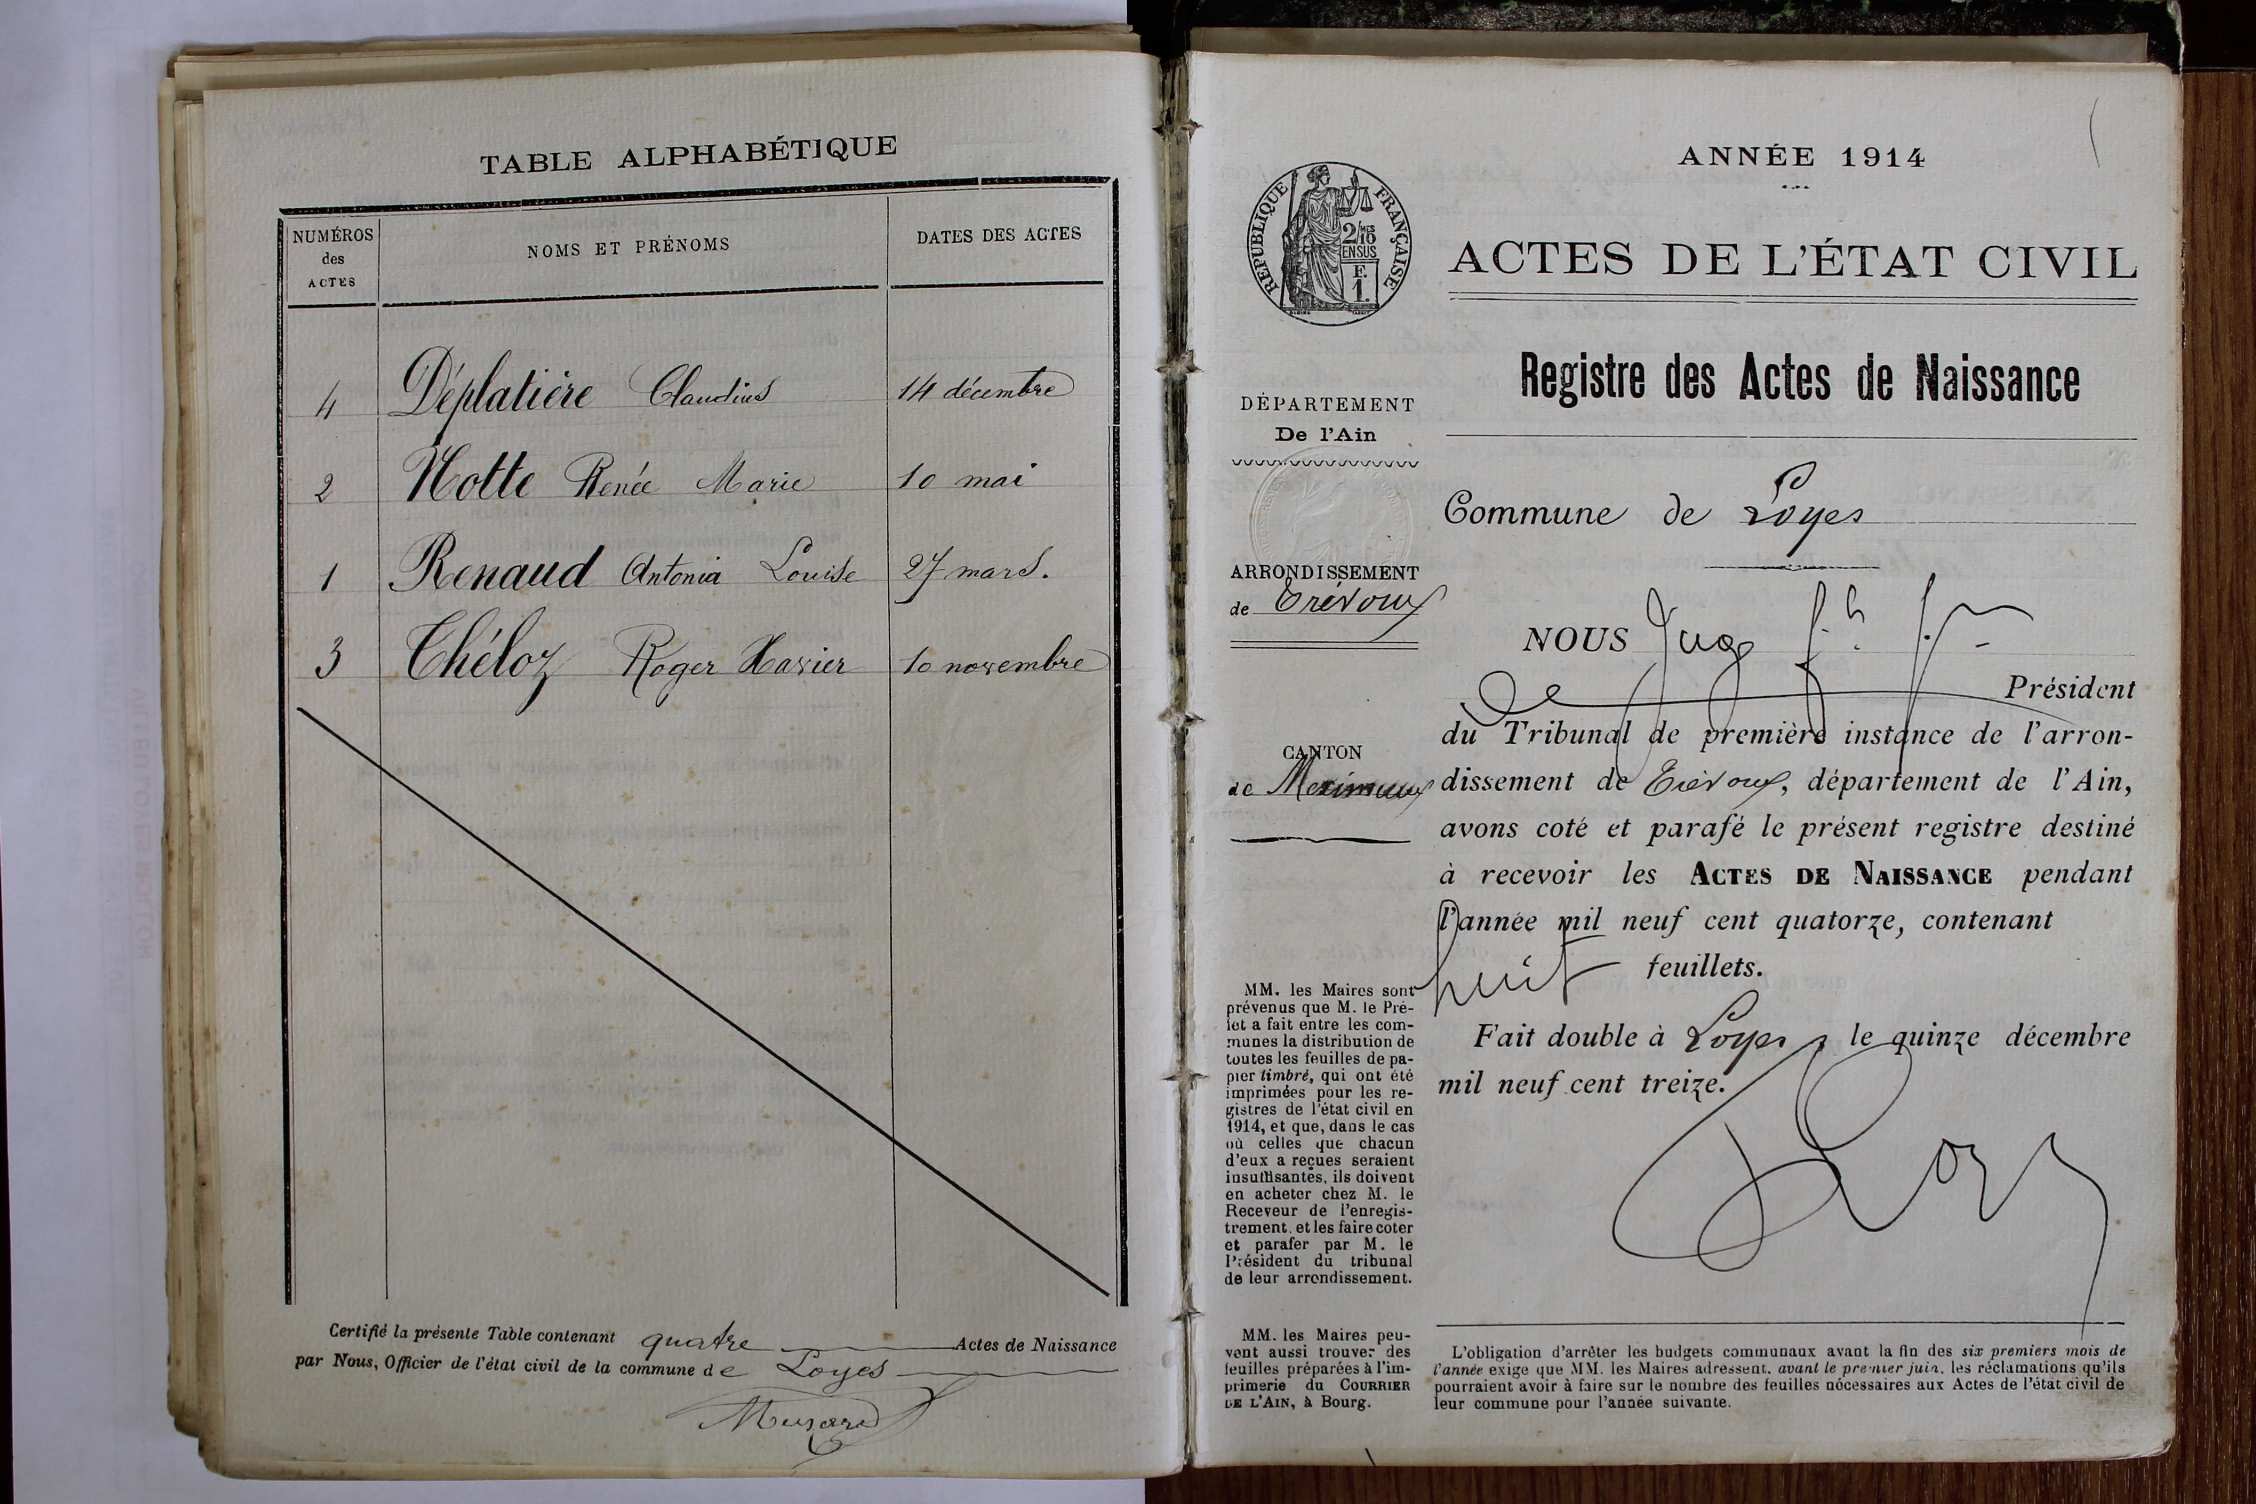 TABLE ALPHABÉTIQUE
NUMÉROS des ACTES
NOMS ET PRÉNOMS
DATES DES ACTES
4 Déplatière Claudius 14 décembre
2 Hotte Renée Marie 10 mai
1 Renaud Antonia Louise 27 mars.
3 Théloz Roger Xavier 10 novembre
Certifié la présente Table contenant quatre Actes de Naissance
par Nous, Officier de l'état civil de la commune de Loyes
ANNÉE 1914
RÉPUBLIQUE FRANÇAISE
2/10 MES
EN SUS
F.
1.
ACTES DE L'ÉTAT CIVIL
Registre des Actes de Naissance
DÉPARTEMENT
De l'Ain
ARRONDISSEMENT
de Trévoux
CANTON
de Meximieux
MM. les Maires sont
prévenus que M. le Pré-
fet a fait entre les com-
munes la distribution de
toutes les feuilles de pa-
pier timbré, qui ont été
imprimées pour les re-
gistres de l'état civil en
1914, et que, dans le cas
où celles que chacun
d'eux a reçues seraient
insuffisantes, ils doivent
en acheter chez M. le
Receveur de l'enregis-
trement, et les faire coter
et parafer par M. le
Président du tribunal
de leur arrondissement.
MM. les Maires peu-
vent aussi trouver des
feuilles préparées à l'im-
primerie du COURRIER
DE L'AIN, à Bourg.
Commune de Loyes
NOUS Juge
Président
du Tribunal de première instance de l'arron-
dissement de Trévoux, département de l'Ain,
avons coté et parafé le présent registre destiné
à recevoir les ACTES DE NAISSANCE pendant
l'année mil neuf cent quatorze, contenant
huit feuillets.
Fait double à Loyes, le quinze décembre
mil neuf cent treize.
L'obligation d'arrêter les budgets communaux avant la fin des six premiers mois de
l'année exige que MM. les Maires adressent, avant le premier juin, les réclamations qu'ils
pourraient avoir à faire sur le nombre des feuilles nécessaires aux Actes de l'état civil de
leur commune pour l'année suivante.